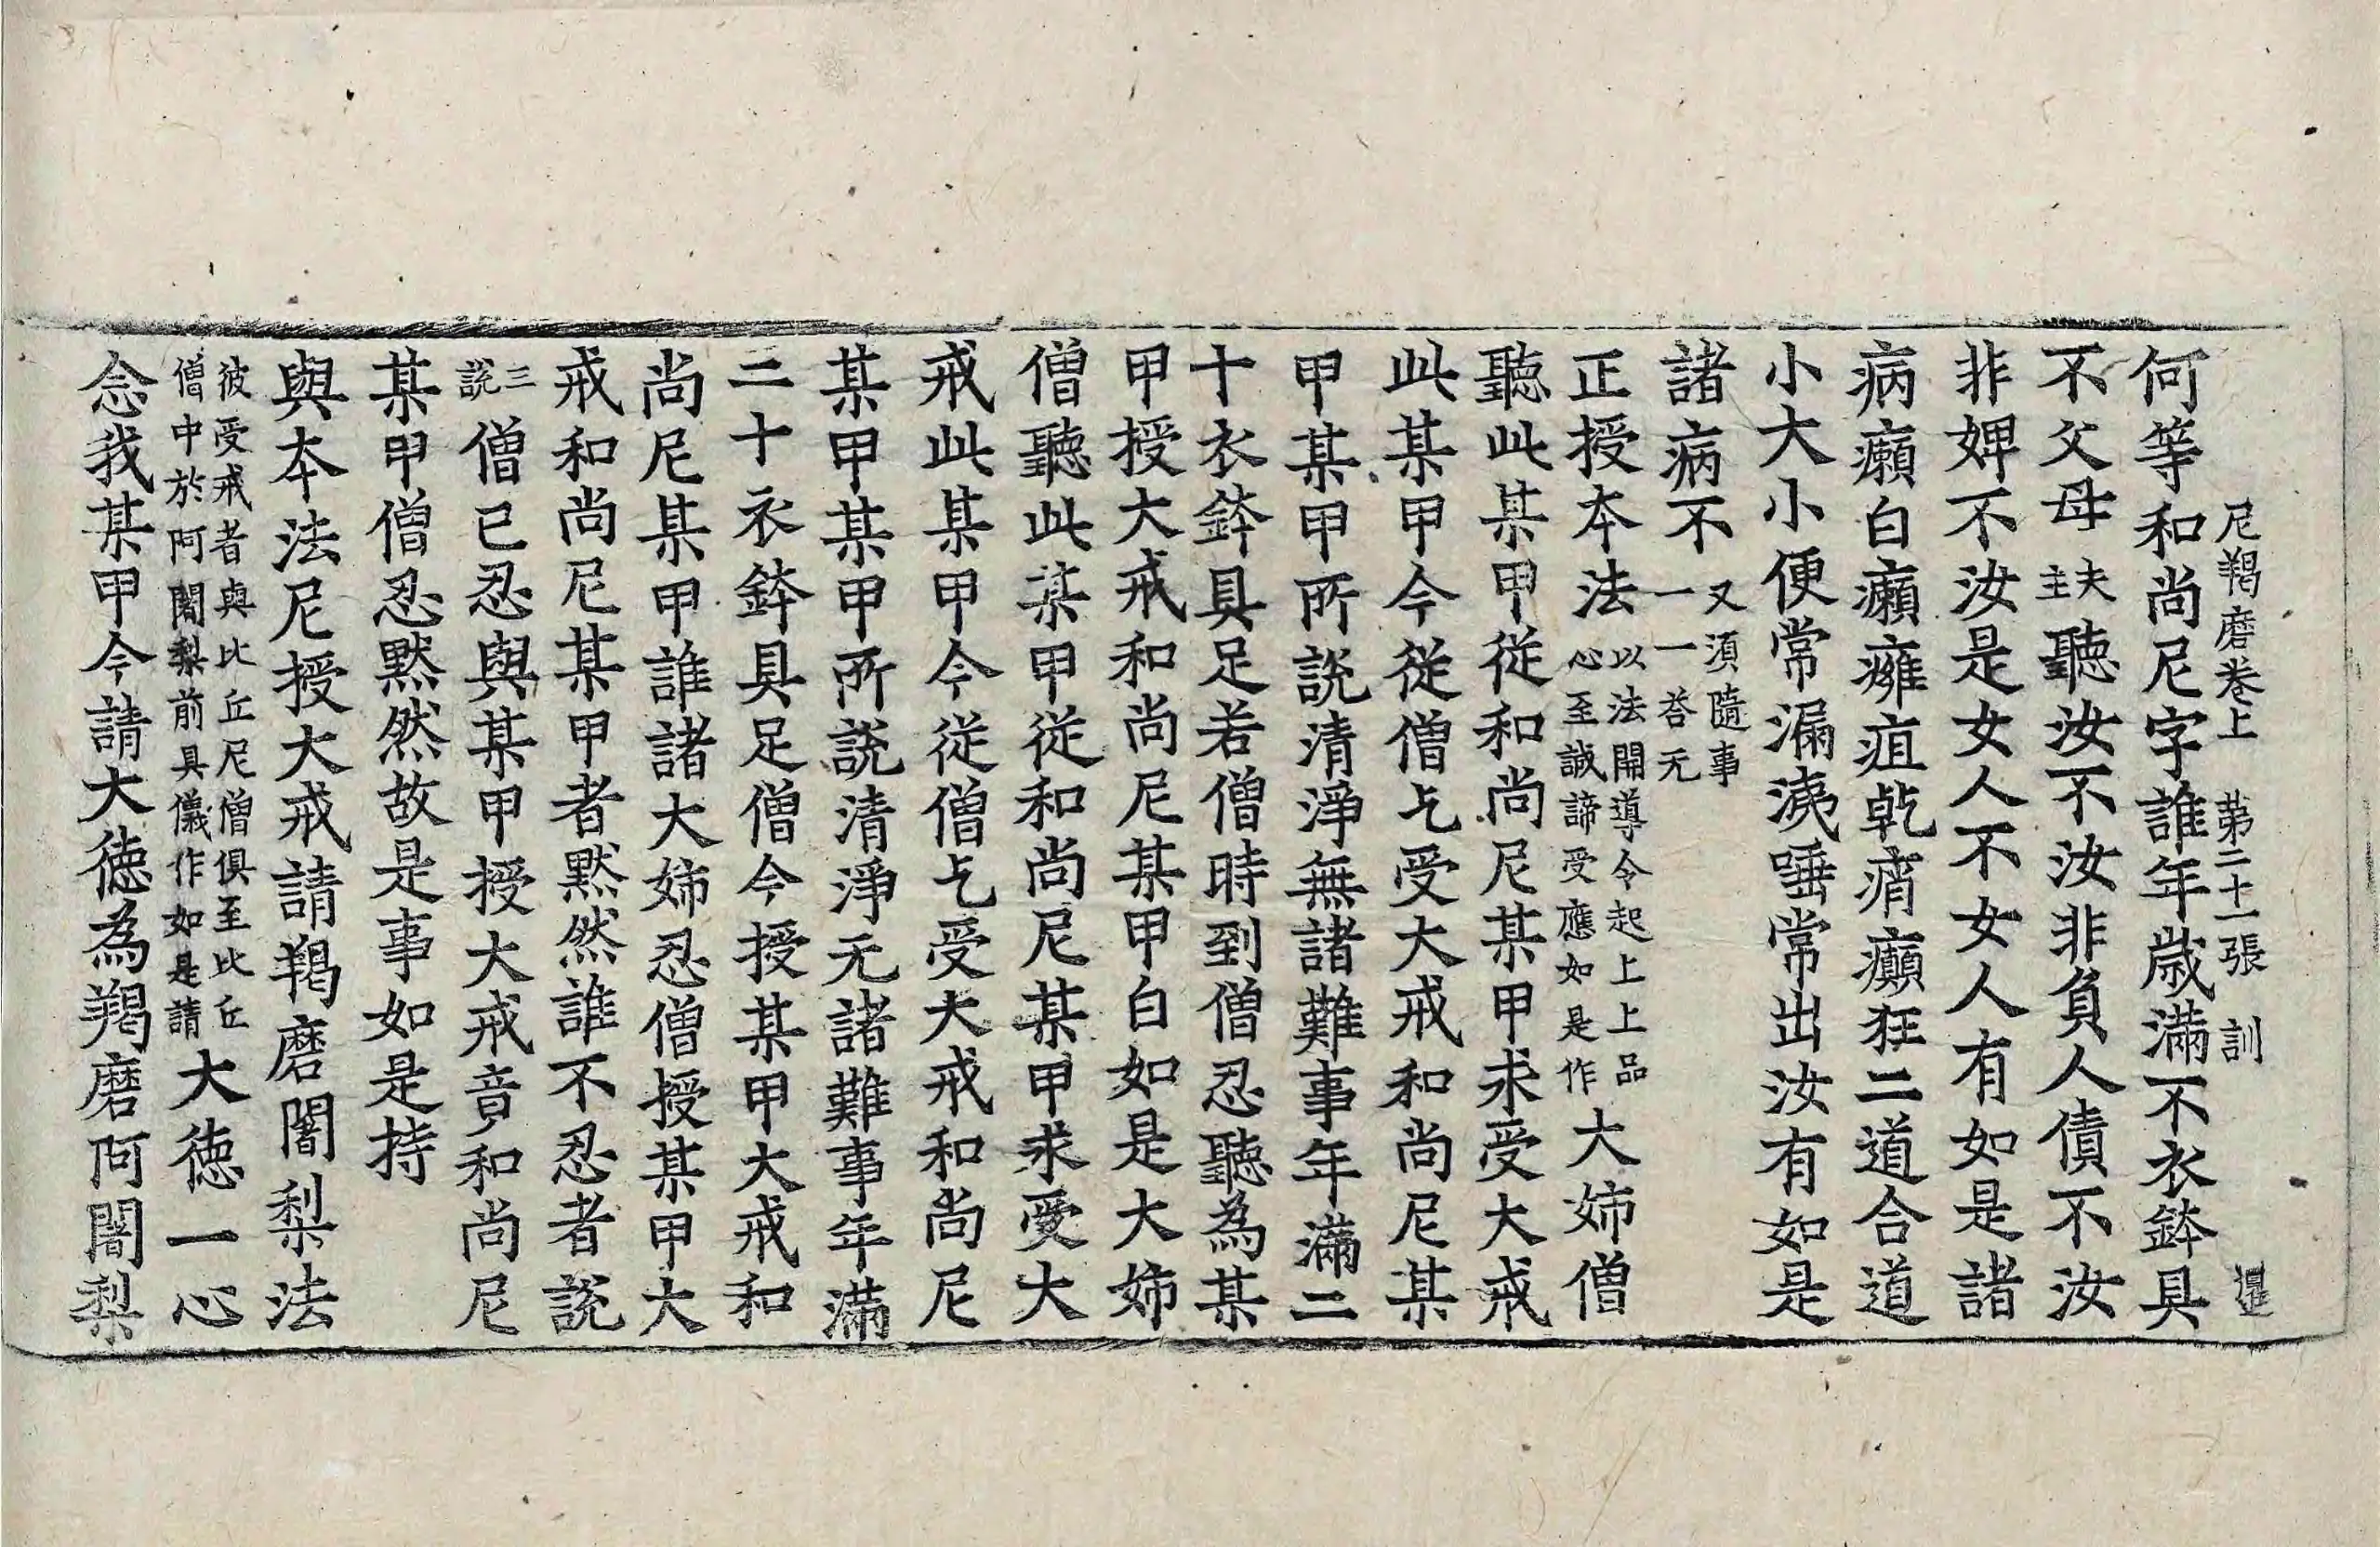 尼羯磨卷上 第二十一張 訓
何等和尚尼字誰年歲滿不衣鉢具
不父母夫主聽汝不汝非負人債不汝
非婢不汝是女人不女人有如是諸
病癩白癩癰疽乾痟癲狂二道合道
小大小便常漏洟唾常出汝有如是
諸病不又須隨事一一答无
正授本法以法開導令起上上品心至誠諦受應如是作大姉僧
聽此某甲從和尚尼某甲求受大戒
此某甲今從僧乞受大戒和尚尼某
甲某甲所說清淨無諸難事年滿二
十衣鉢具足若僧時到僧忍聽為某
甲授大戒和尚尼某甲白如是大姉
僧聽此某甲從和尚尼某甲求受大
戒此某甲今從僧乞受大戒和尚尼
某甲某甲所說清淨无諸難事年滿
二十衣鉢具足僧今授某甲大戒和
尚尼某甲誰諸大姉忍僧授某甲大
戒和尚尼某甲者默然誰不忍者說
三說僧已忍與某甲授大戒竟和尚尼
某甲僧忍默然故是事如是持
與本法尼授大戒請羯磨闍梨法
彼受戒者與比丘尼僧俱至比丘僧中於阿闍梨前具儀作如是請大德一心
念我某甲今請大德為羯磨阿闍梨